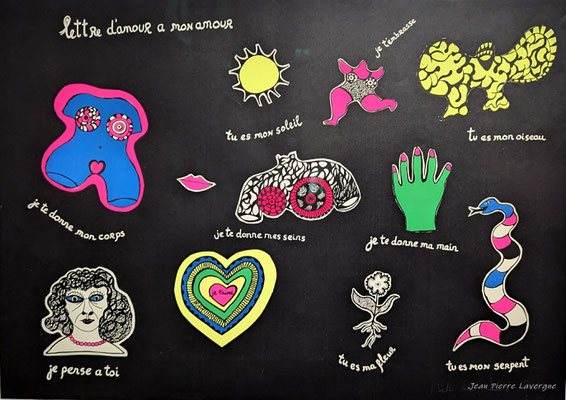 lettre d'amour a mon amour
je t'embrasse
tu es mon soleil
tu es mon oiseau
je te donne mon corps
je te donne mes seins
je te donne ma main
je t'aime
je pense a toi
tu es ma fleur
tu es mon serpent
Jean Pierre Lavergne